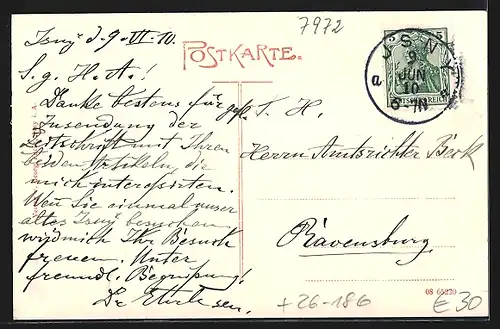 7972
Isny d. 9. VI. 10.
POSTKARTE.
S. g. H. A.!
Danke bestens für gefl.
Zusendung der
Zeitschrift mit Ihren
beiden Artikeln, die
mich interessirten.
Wen Sie einmal unser
altes Isny besuchen,
würd mich Ihr Besuch
freuen. Unter
freundl. Begrüßung!
Dr.
S. T. H.
Herrn Amtsrichter Beck
Ravensburg
ISNY
9.
JUN
10
5-
N
a
5
DEUTSCHES REICH
08 65220
+26-186
€30